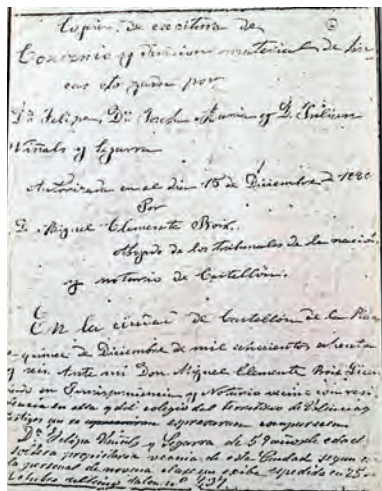 Copia de escritura de
Convenio y division material de fin-
cas otorgada por
Dª Felipa, Dª Josefa Maria y D. Julian
Viñals y Segarra
Autorizada en el dia 15 de Diciembre de 1886
Por
D. Miguel Clemente Bois.
Abogado de los tribunales de la nación
y notario de Castellón.
En la ciudad de Castellón de la Plana
quince de Diciembre de mil ochocientos ochenta
y seis. Ante mi Don Miguel Clemente Bois Licen
ciado en Jurisprudencia y Notario vecino con resi
dencia en ella y del colegio del territorio de Valencia y
testigos que se espresaran comparecen
Dª Felipa Viñals y Segarra de 59 años de edad
soltera propietaria vecina de esta Ciudad segun
la personal de novena clase que exibe espedida en 25